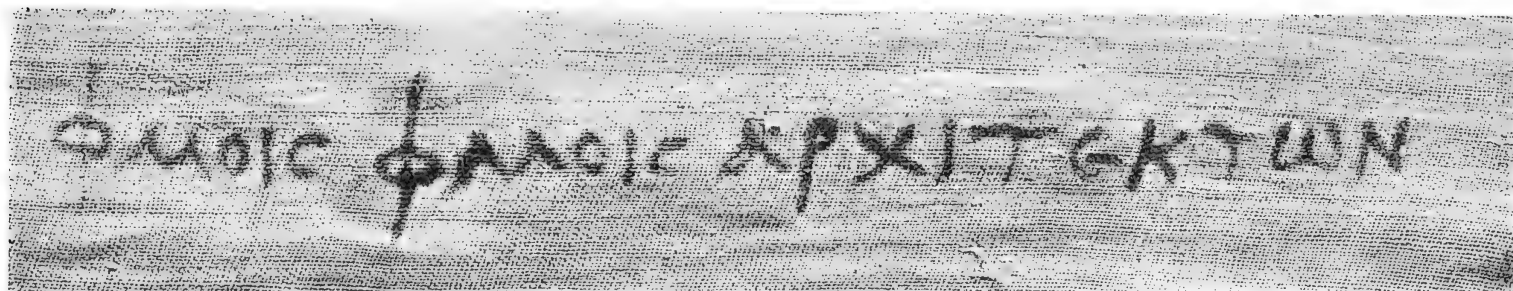 ΦΑΜΟΙϹ ΦΑΜΟΙϹ ΑΡΧΙΤΕΚΤωΝ